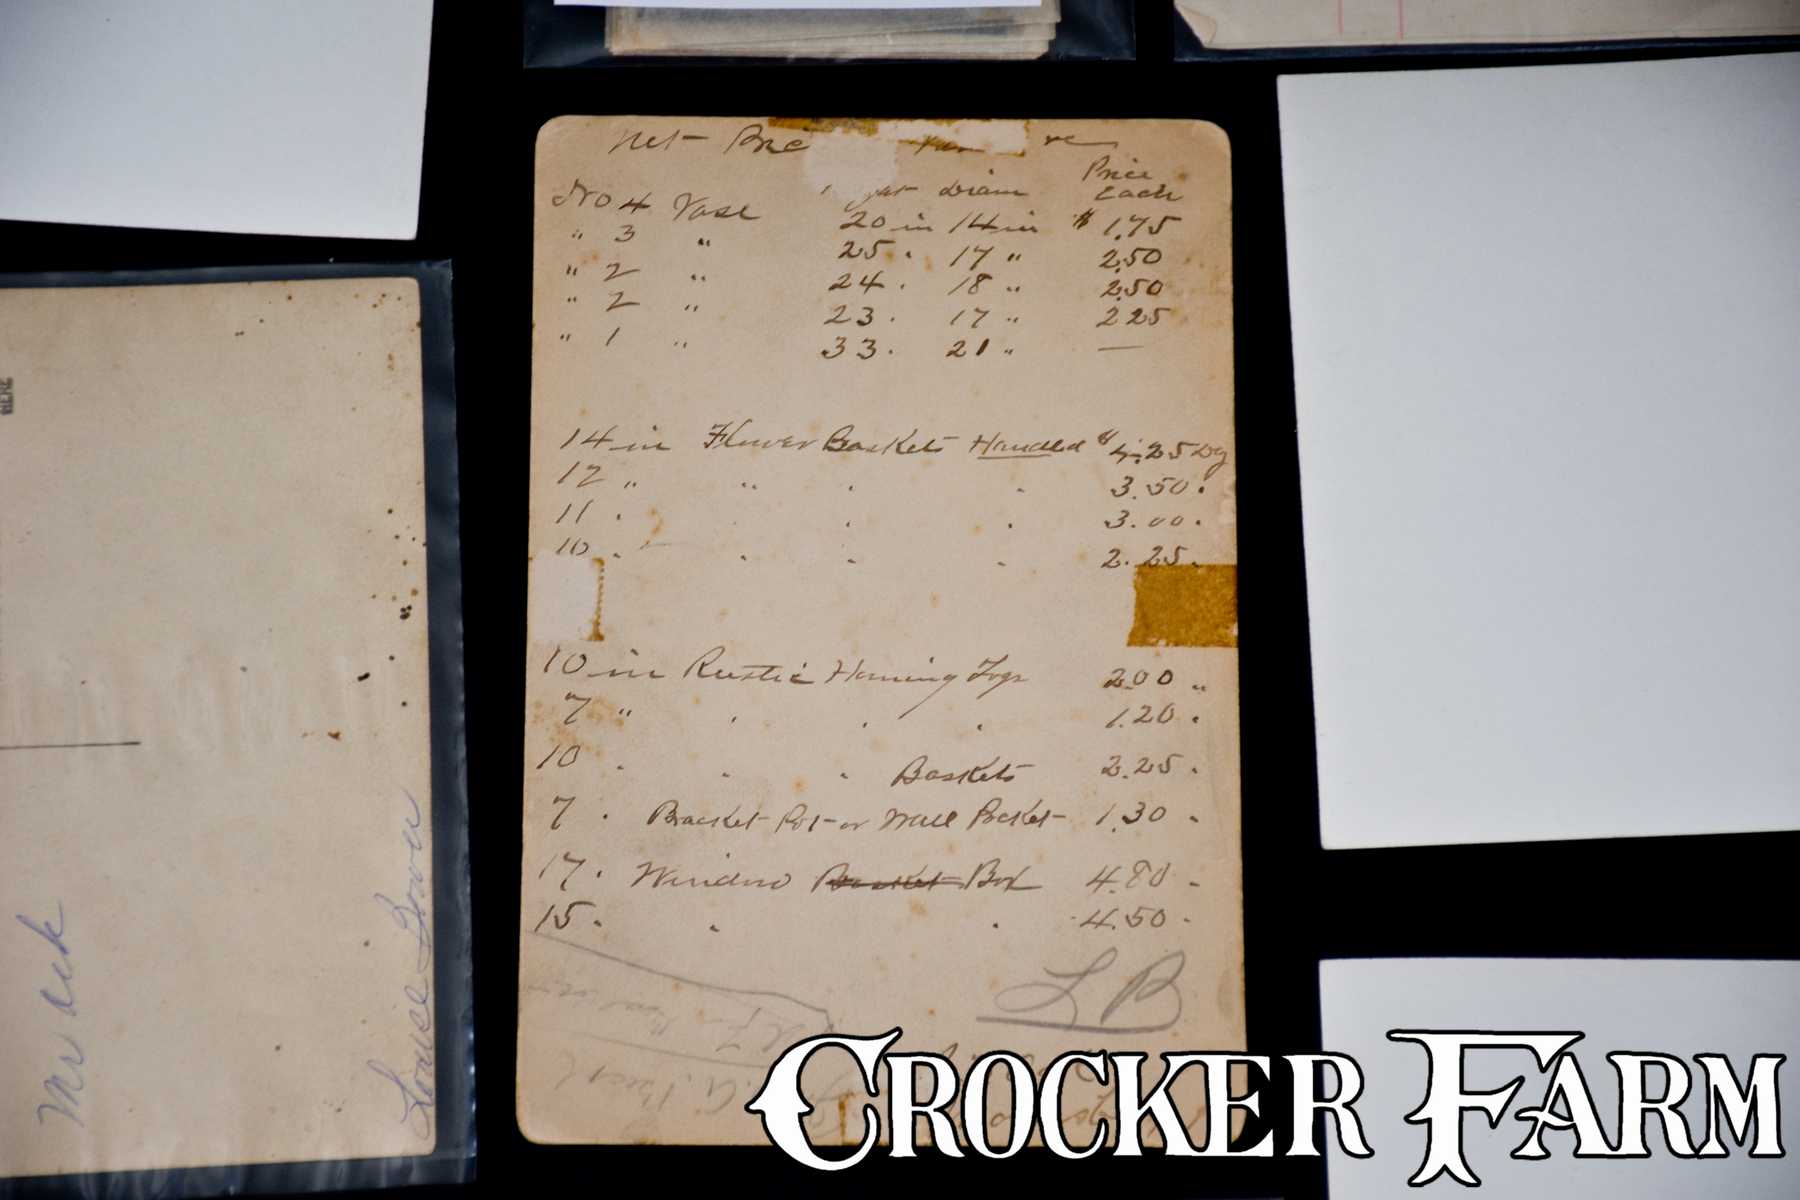 Net Price
Price
Diam Each
No 4 Vase 20 in 14 in $ 1.75
" 3 " 25 " 17 " 2.50
" 2 " 24 " 18 " 2.50
" 2 " 23 " 17 " 2.25
" 1 " 33 " 21 " —
14 in Flower Baskets Handled $ 4.25 Dz
12 " " " " 3.50 "
11 " " " " 3.00 "
10 " " " " 2.25 "
10 in Rustic Hanging Logs 2.00 "
7 " " " " 1.20 "
10 " " " Baskets 2.25 "
7 " Bracket Pot or Wall Pocket 1.30 "
17 " Window Basket Box 4.80 "
15 " " " 4.50 "
LB
HERE
Mr
Louise Bower
CROCKER FARM